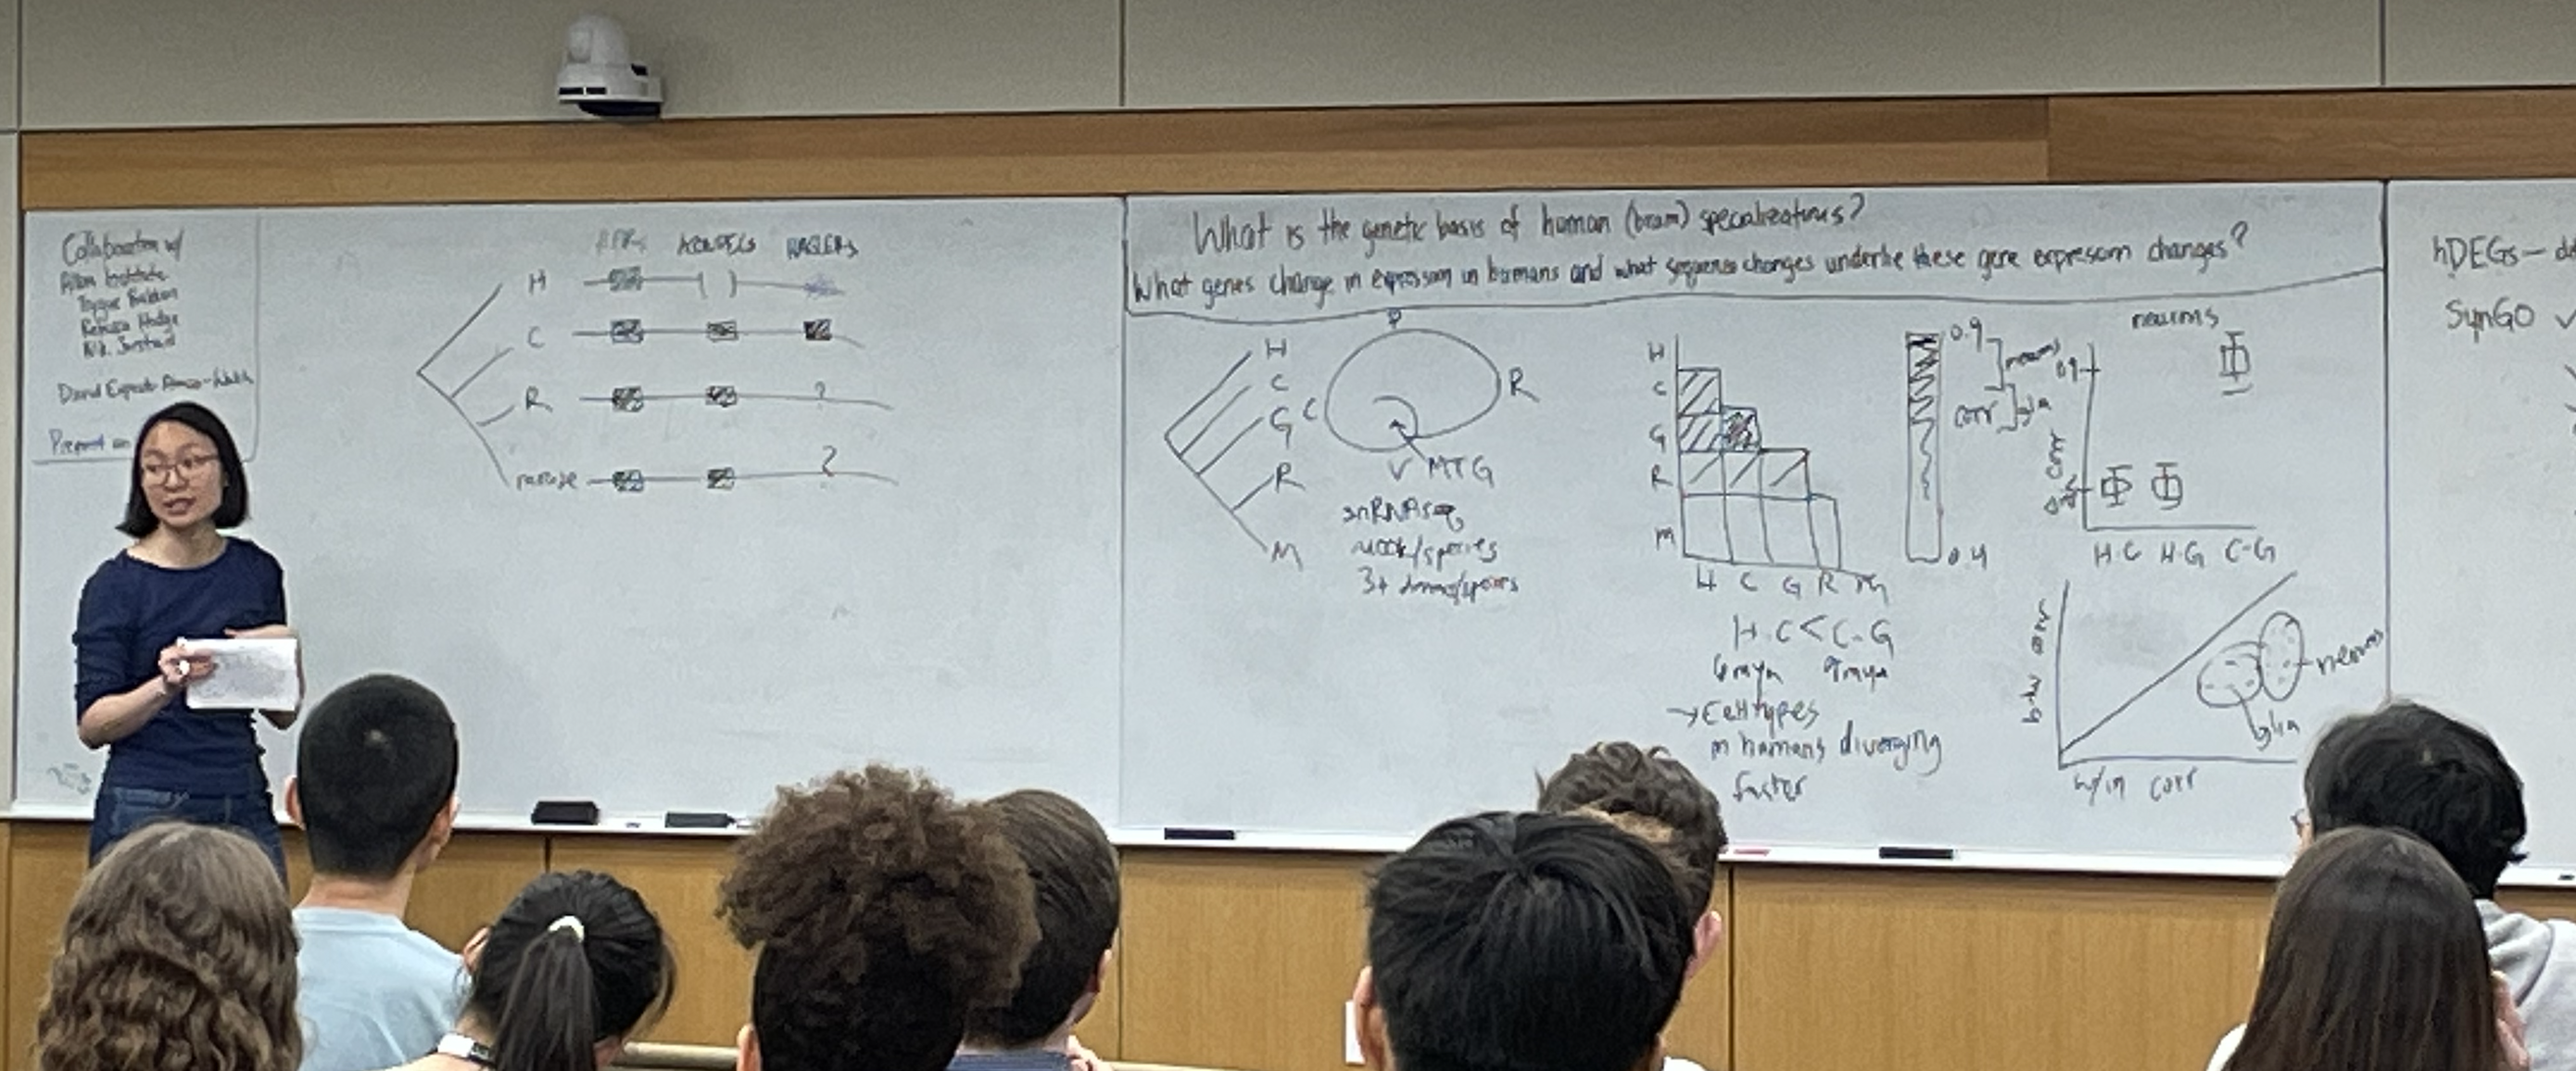 Collaboration w/
Allen Institute
Trygve Bakken
Rebecca Hodge
Nik Jorstad
David Exposit
Preprint on
HARs hCONDELs HAQERs
H
C
R ?
mouse ?
What is the genetic basis of human (brain) specializations?
What genes change in expression in humans and what sequence changes underlie these gene expression changes?
H
C
G
R
M
C R
V MTG
snRNAseq
/species
3+ /species
H
C
G
R
M
H C G R M
H-C < C-G
6mya 9mya
→ Cell types
in humans diverging
faster
0.9
neurons
corr
glia
0.4
neurons
0.9
corr
H-C H-G C-G
btw corr
neurons
glia
w/in corr
hDEGs —
SynGO ✓